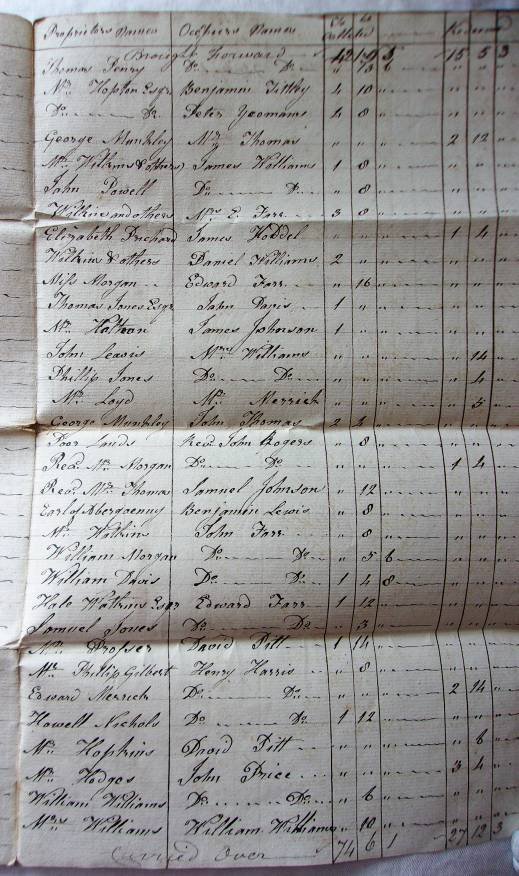 Proprietors Names Occupiers Names Collected Redeemed
Brought forward 42 19 5 15 5 3
Thomas Penry Do Do " 13 6 " " "
Mr Hopton Esqr Benjamin 4 10 " " " "
Do Do Peter Yeomans 4 8 " " " "
George Munkley Mr Thomas " " " 2 12 "
Mr Wilkins & others James Williams 1 8 " " " "
John Powell Do Do " 8 " " " "
Wilkins and others Mrs E. Farr 3 8 " " " "
Elizabeth Prichard James Hoddel " " " 1 4 "
Wilkins & others Daniel Williams 2 " " " " "
Miss Morgan Edward Farr " 16 " " " "
Thomas Jones Esqr John Davis 1 " " " " "
Mr James Johnson 1 " " " " "
John Leawis Mrs Williams " " " " 14 "
Phillip Jones Do Do " " " " 4 "
Mr Loyd Mr Merrick " " " " 5 "
George Munkley John Thomas 2 4 " " " "
Poor Lands Revd John Rogers " 8 " " " "
Revd Mr Morgan Do Do " " " 1 4 "
Revd Mr Thomas Samuel Johnson " 12 " " " "
Earl of Abergaenny Benjamin Lewis " 8 " " " "
Mr Watkins John Farr " 8 " " " "
William Morgan Do Do " 5 6 " " "
William Davis Do Do 1 4 8 " " "
Hale Watkins Esqr Edward Farr 1 12 " " " "
Samuel Jones Do Do " 3 " " " "
Mr Prosser David Pitt 1 14 " " " "
Mr Phillip Gilbert Henry Harris " 8 " " " "
Edward Merrick Do Do " " " 2 14 "
Howell Nichols Do Do 1 12 " " " "
Mr Hopkins David Pitt " " " " 8 "
Mr Hodges John Price " " " 3 4 "
William Williams Do Do " 6 " " " "
Mrs Williams William Williams " 10 " " " "
Carried Over 74 6 1 27 12 3